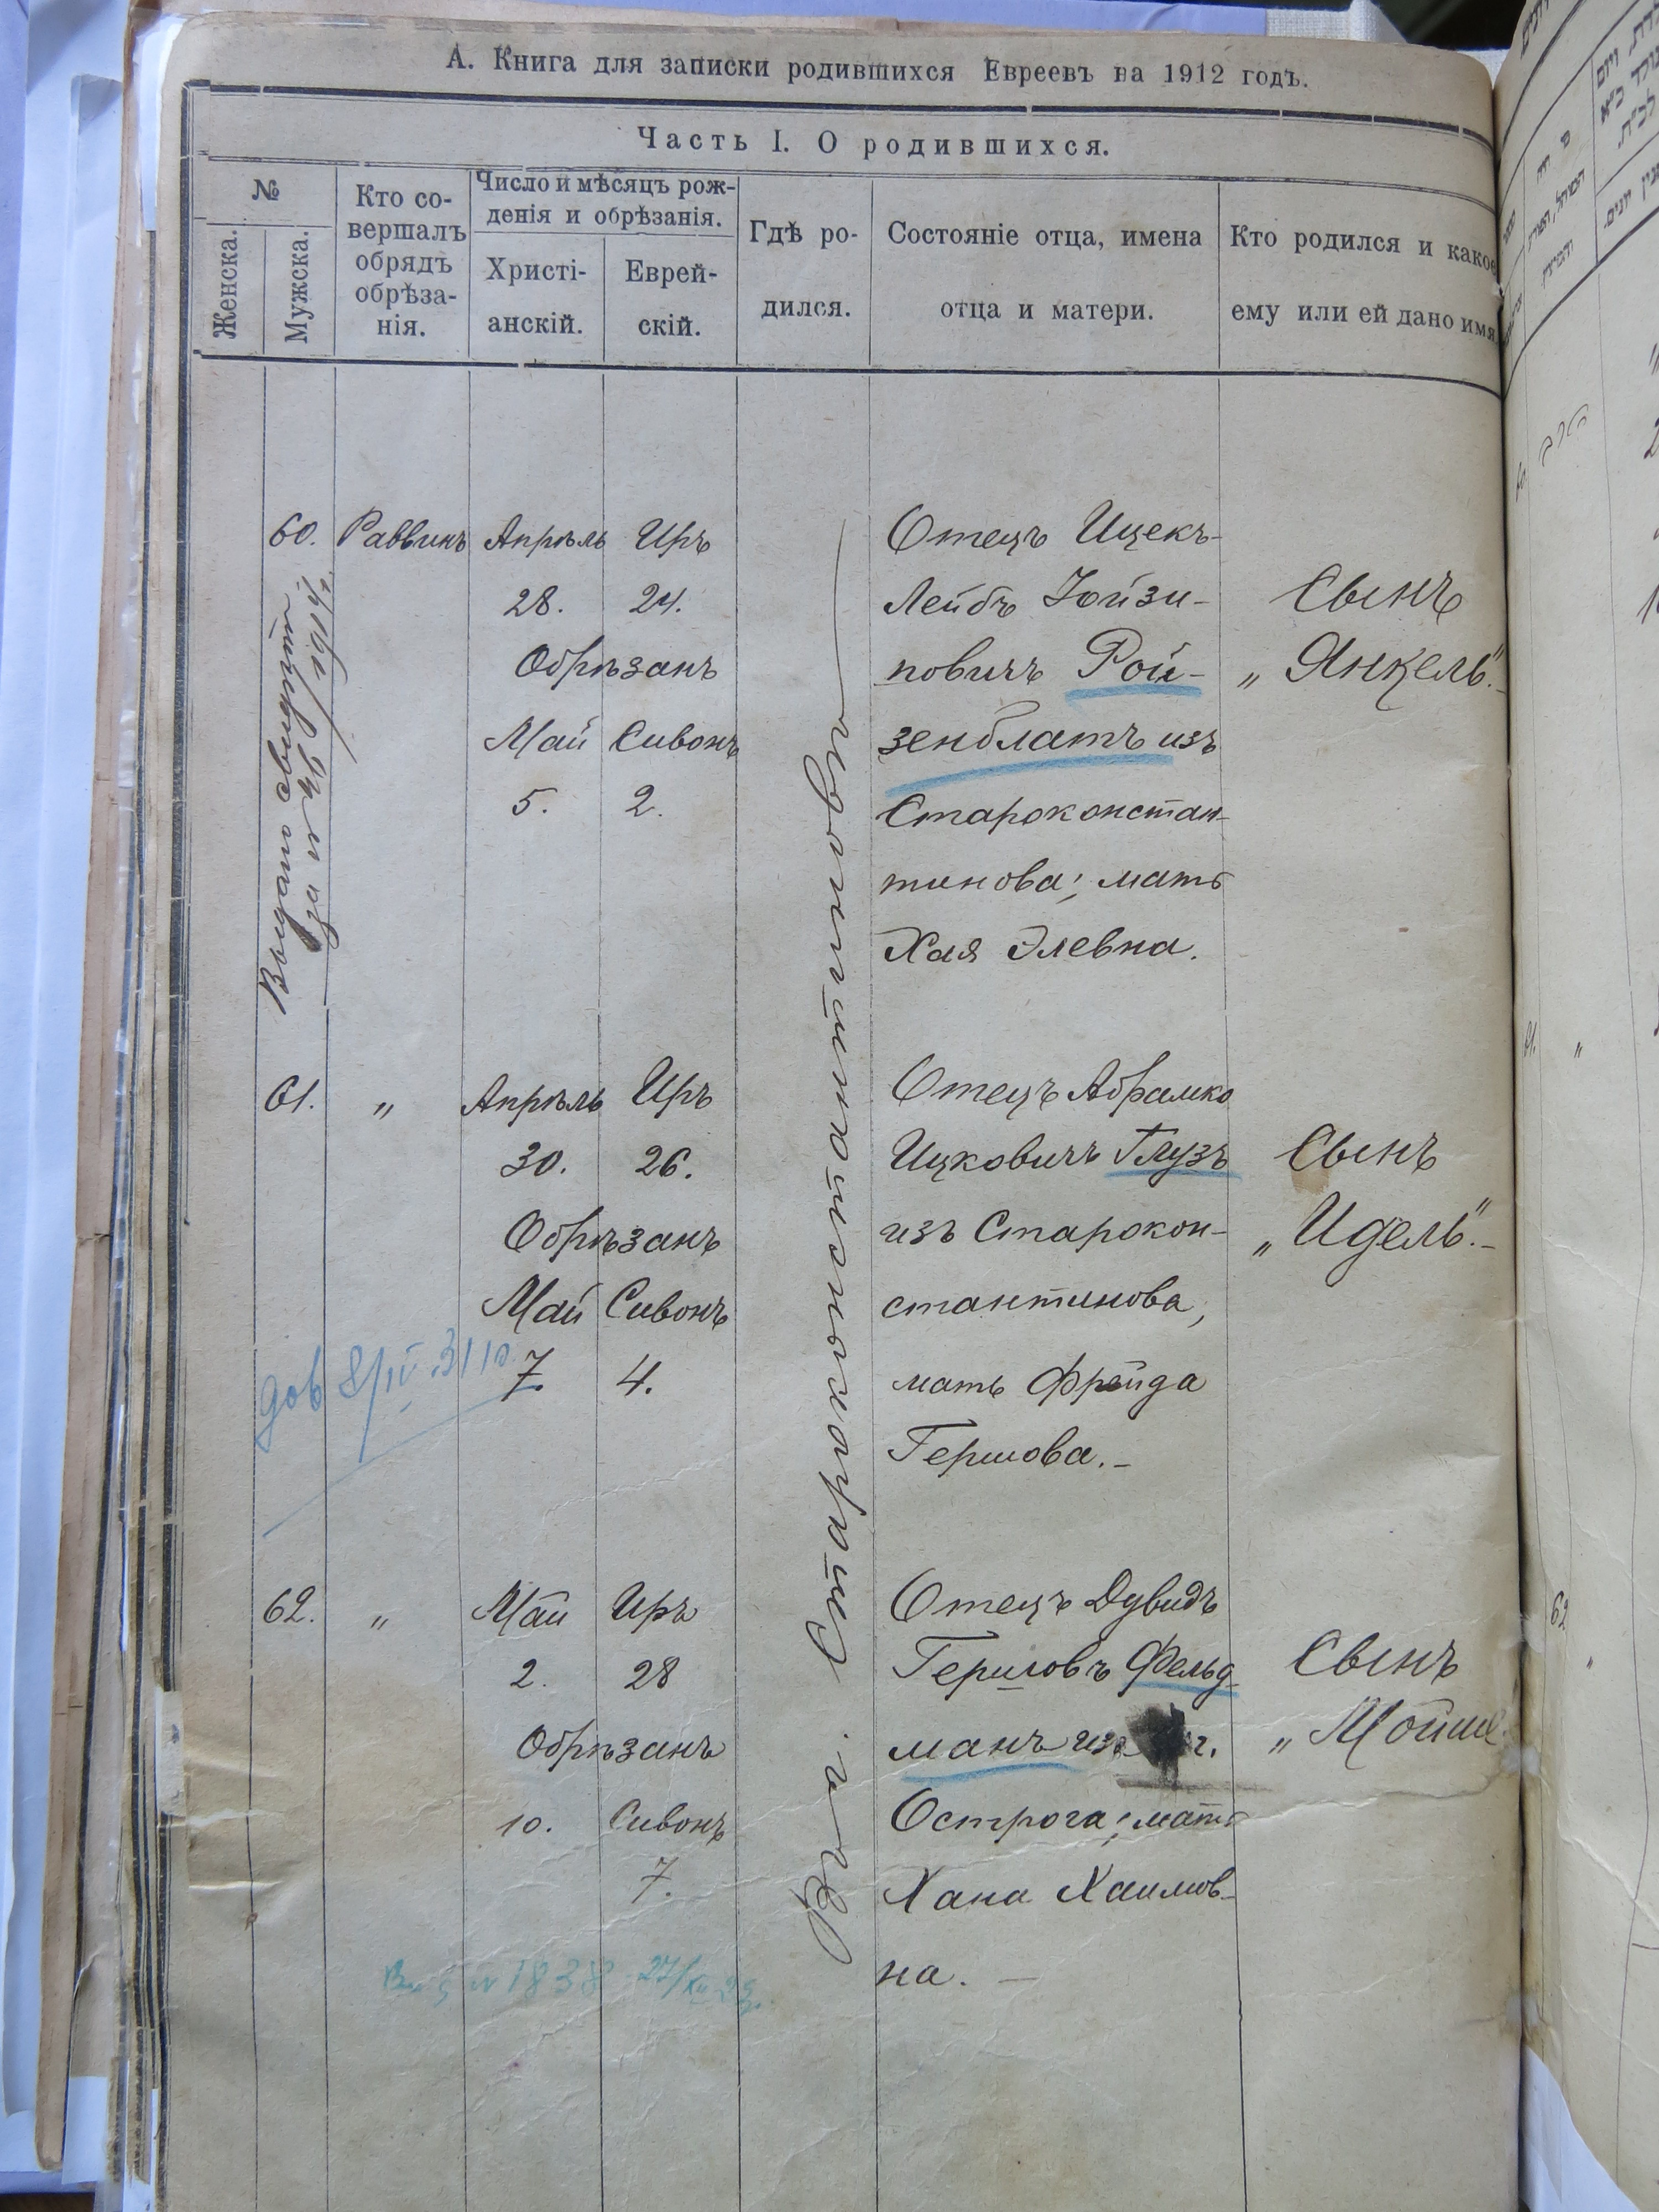 А. Книга для записки родившихся Евреевъ на 1912 годъ.
Часть I. О родившихся.
№
Женска.
Мужска.
Кто со-
вершалъ
обрядъ
обрѣза-
нія.
Число и мѣсяцъ рож-
денія и обрѣзанія.
Христі-
анскій.
Еврей-
скій.
Гдѣ ро-
дился.
Состояніе отца, имена
отца и матери.
Кто родился и какое
ему или ей дано имя
Въ г. Староконстантиновѣ
60.
Раввинъ
Апрѣль
28.
Обрѣзанъ
Май
5.
Иръ
24.
Сивонъ
2.
Отецъ Ицекъ-
Лейбъ Іойзи-
повичъ Рой-
зенблатъ изъ
Староконстан-
тинова; мать
Хая Элевна.
Сынъ
„Янкель".-
61.
„
Апрѣль
30.
Обрѣзанъ
Май
7.
Иръ
26.
Сивонъ
4.
Отецъ Абрамко
Ицковичъ Глузъ
изъ Старокон-
стантинова,
мать Фрейда
Гершова.-
Сынъ
„Идель".-
дов 8/IV 31 р.
62.
„
Май
2.
Обрѣзанъ
10.
Иръ
28
Сивонъ
7.
Отецъ Дувидъ
Гершовъ Фельд-
манъ изъ г.
Острога; мать
Хана Хаимов-
на. -
Сынъ
„Мойше
№ 1838 27/XII
62